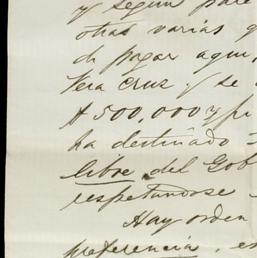 y segun pare
otras varias q
de pagar aqui,
Vera Cruz y se
$500,000 y pr
ha destinado
libre del Gob
respetandose
Hay orden
preferencia, es